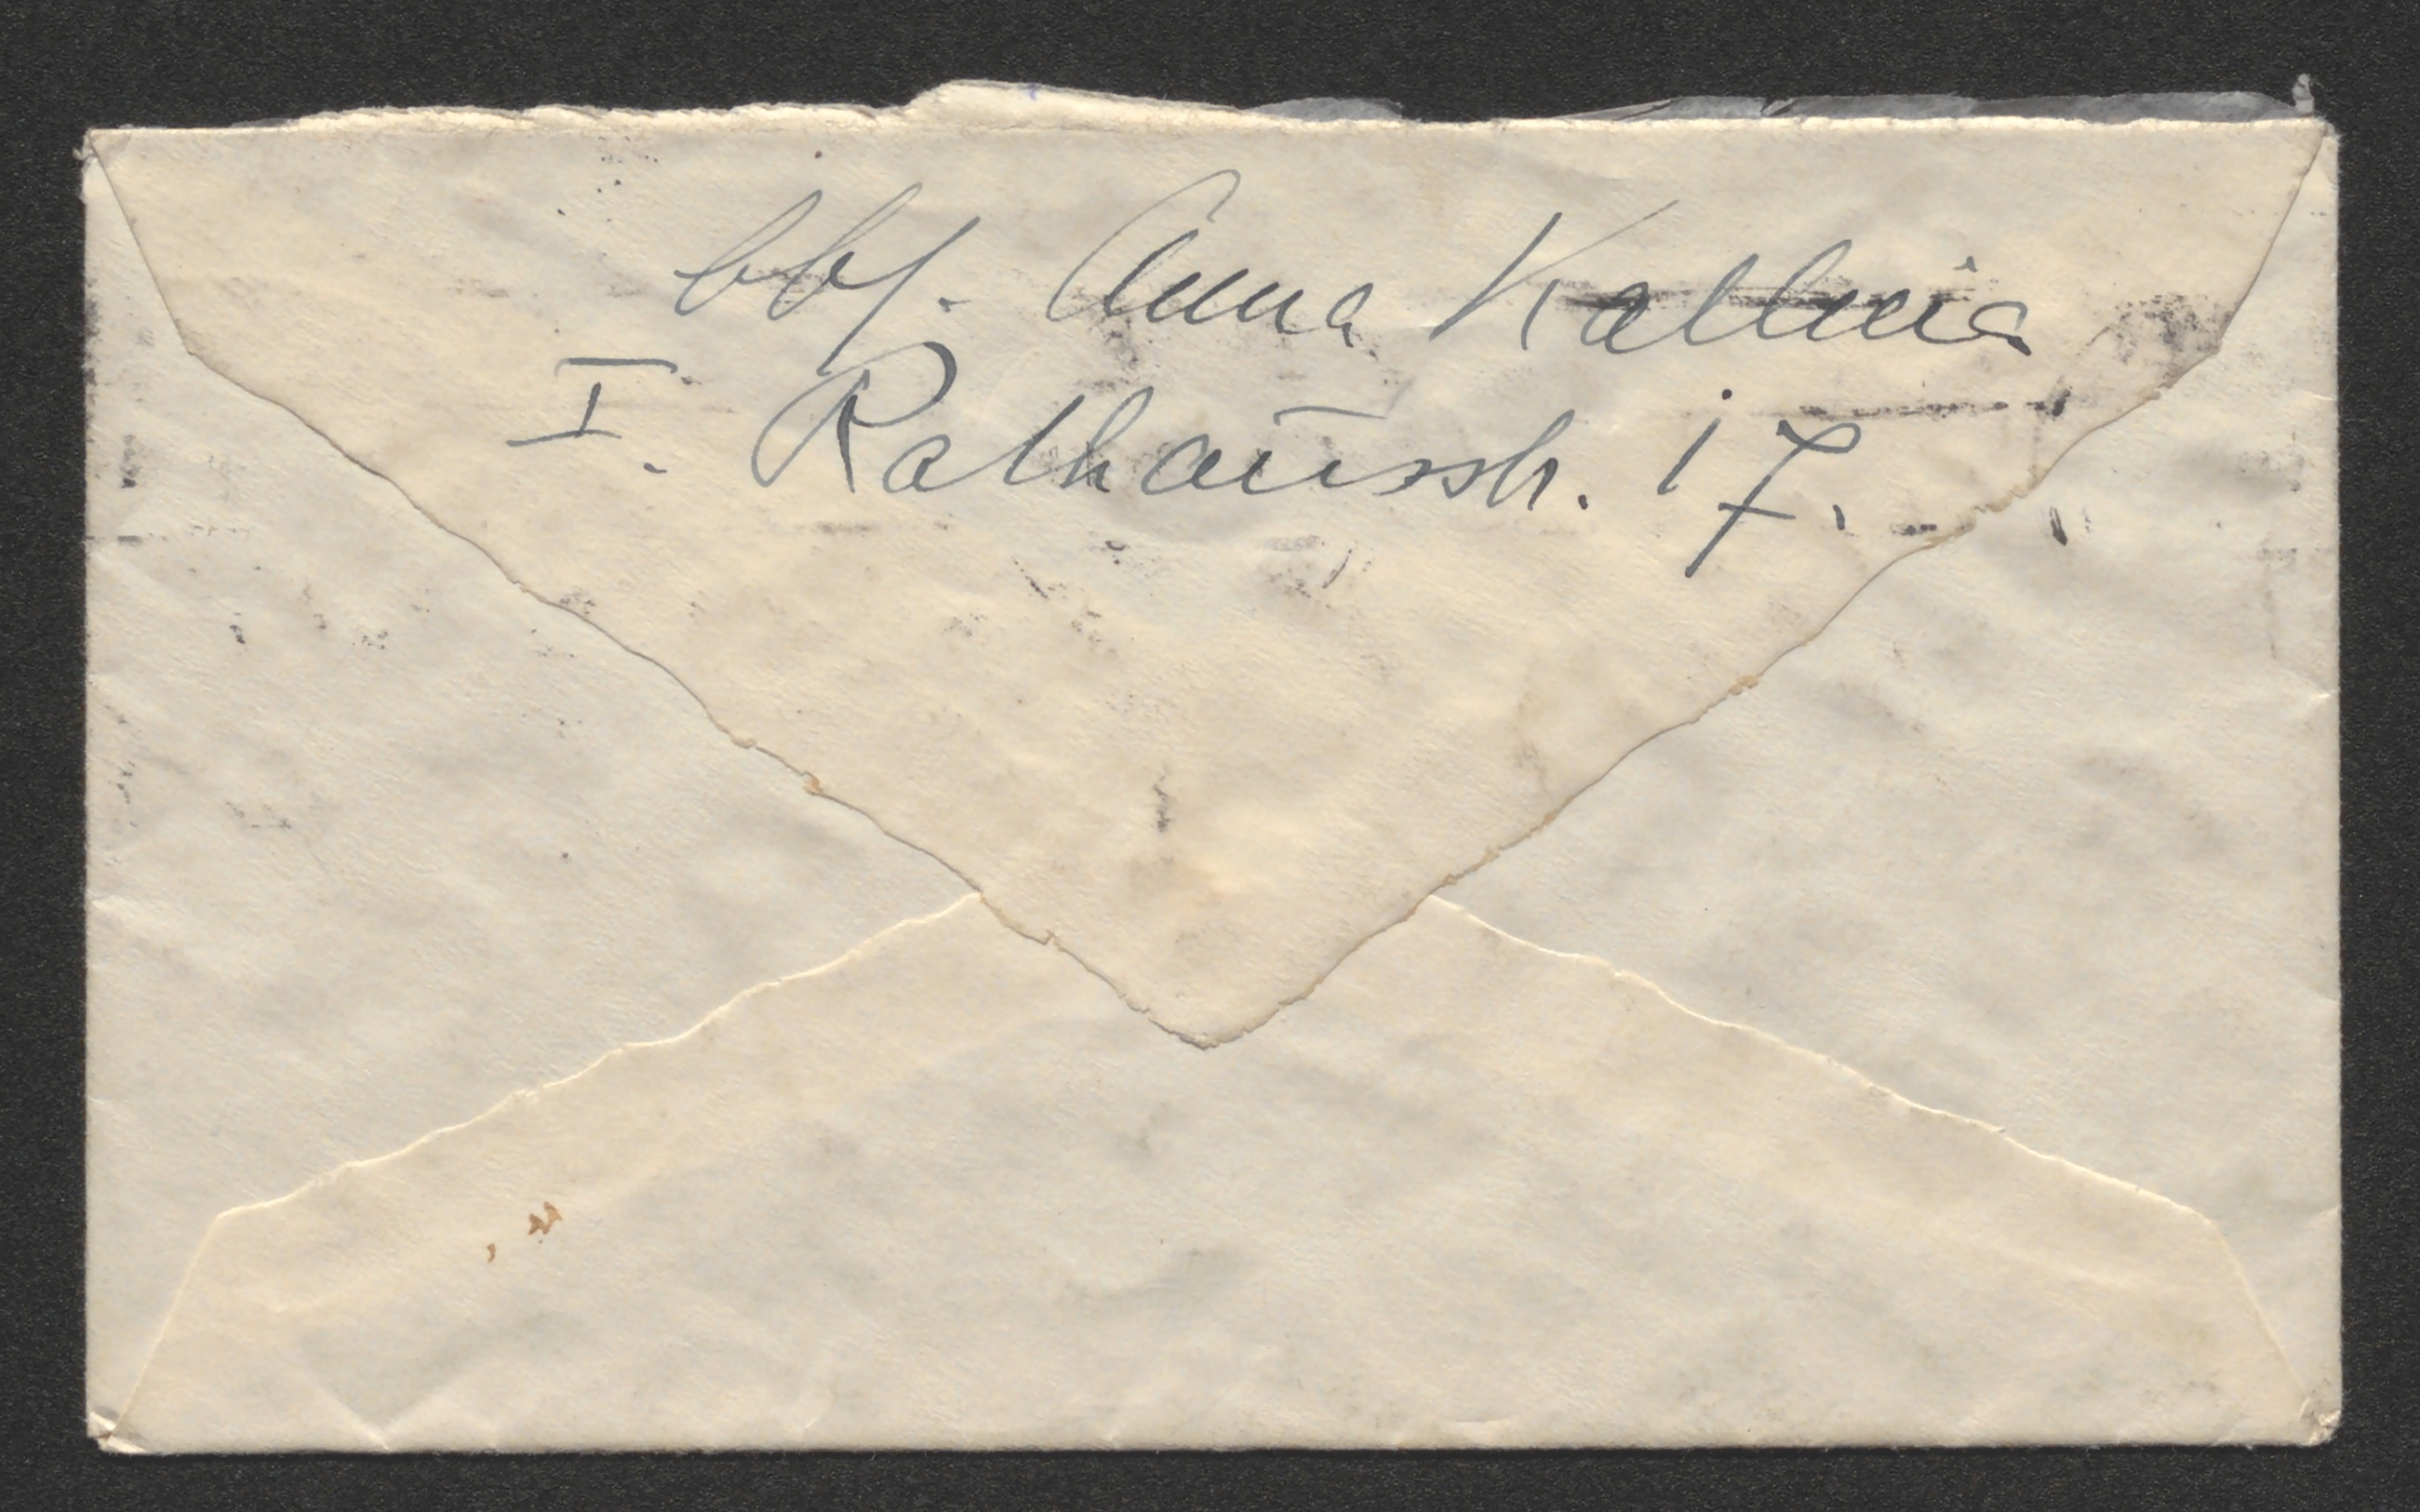 Anna Kallina
I. Rathausstr. 17.